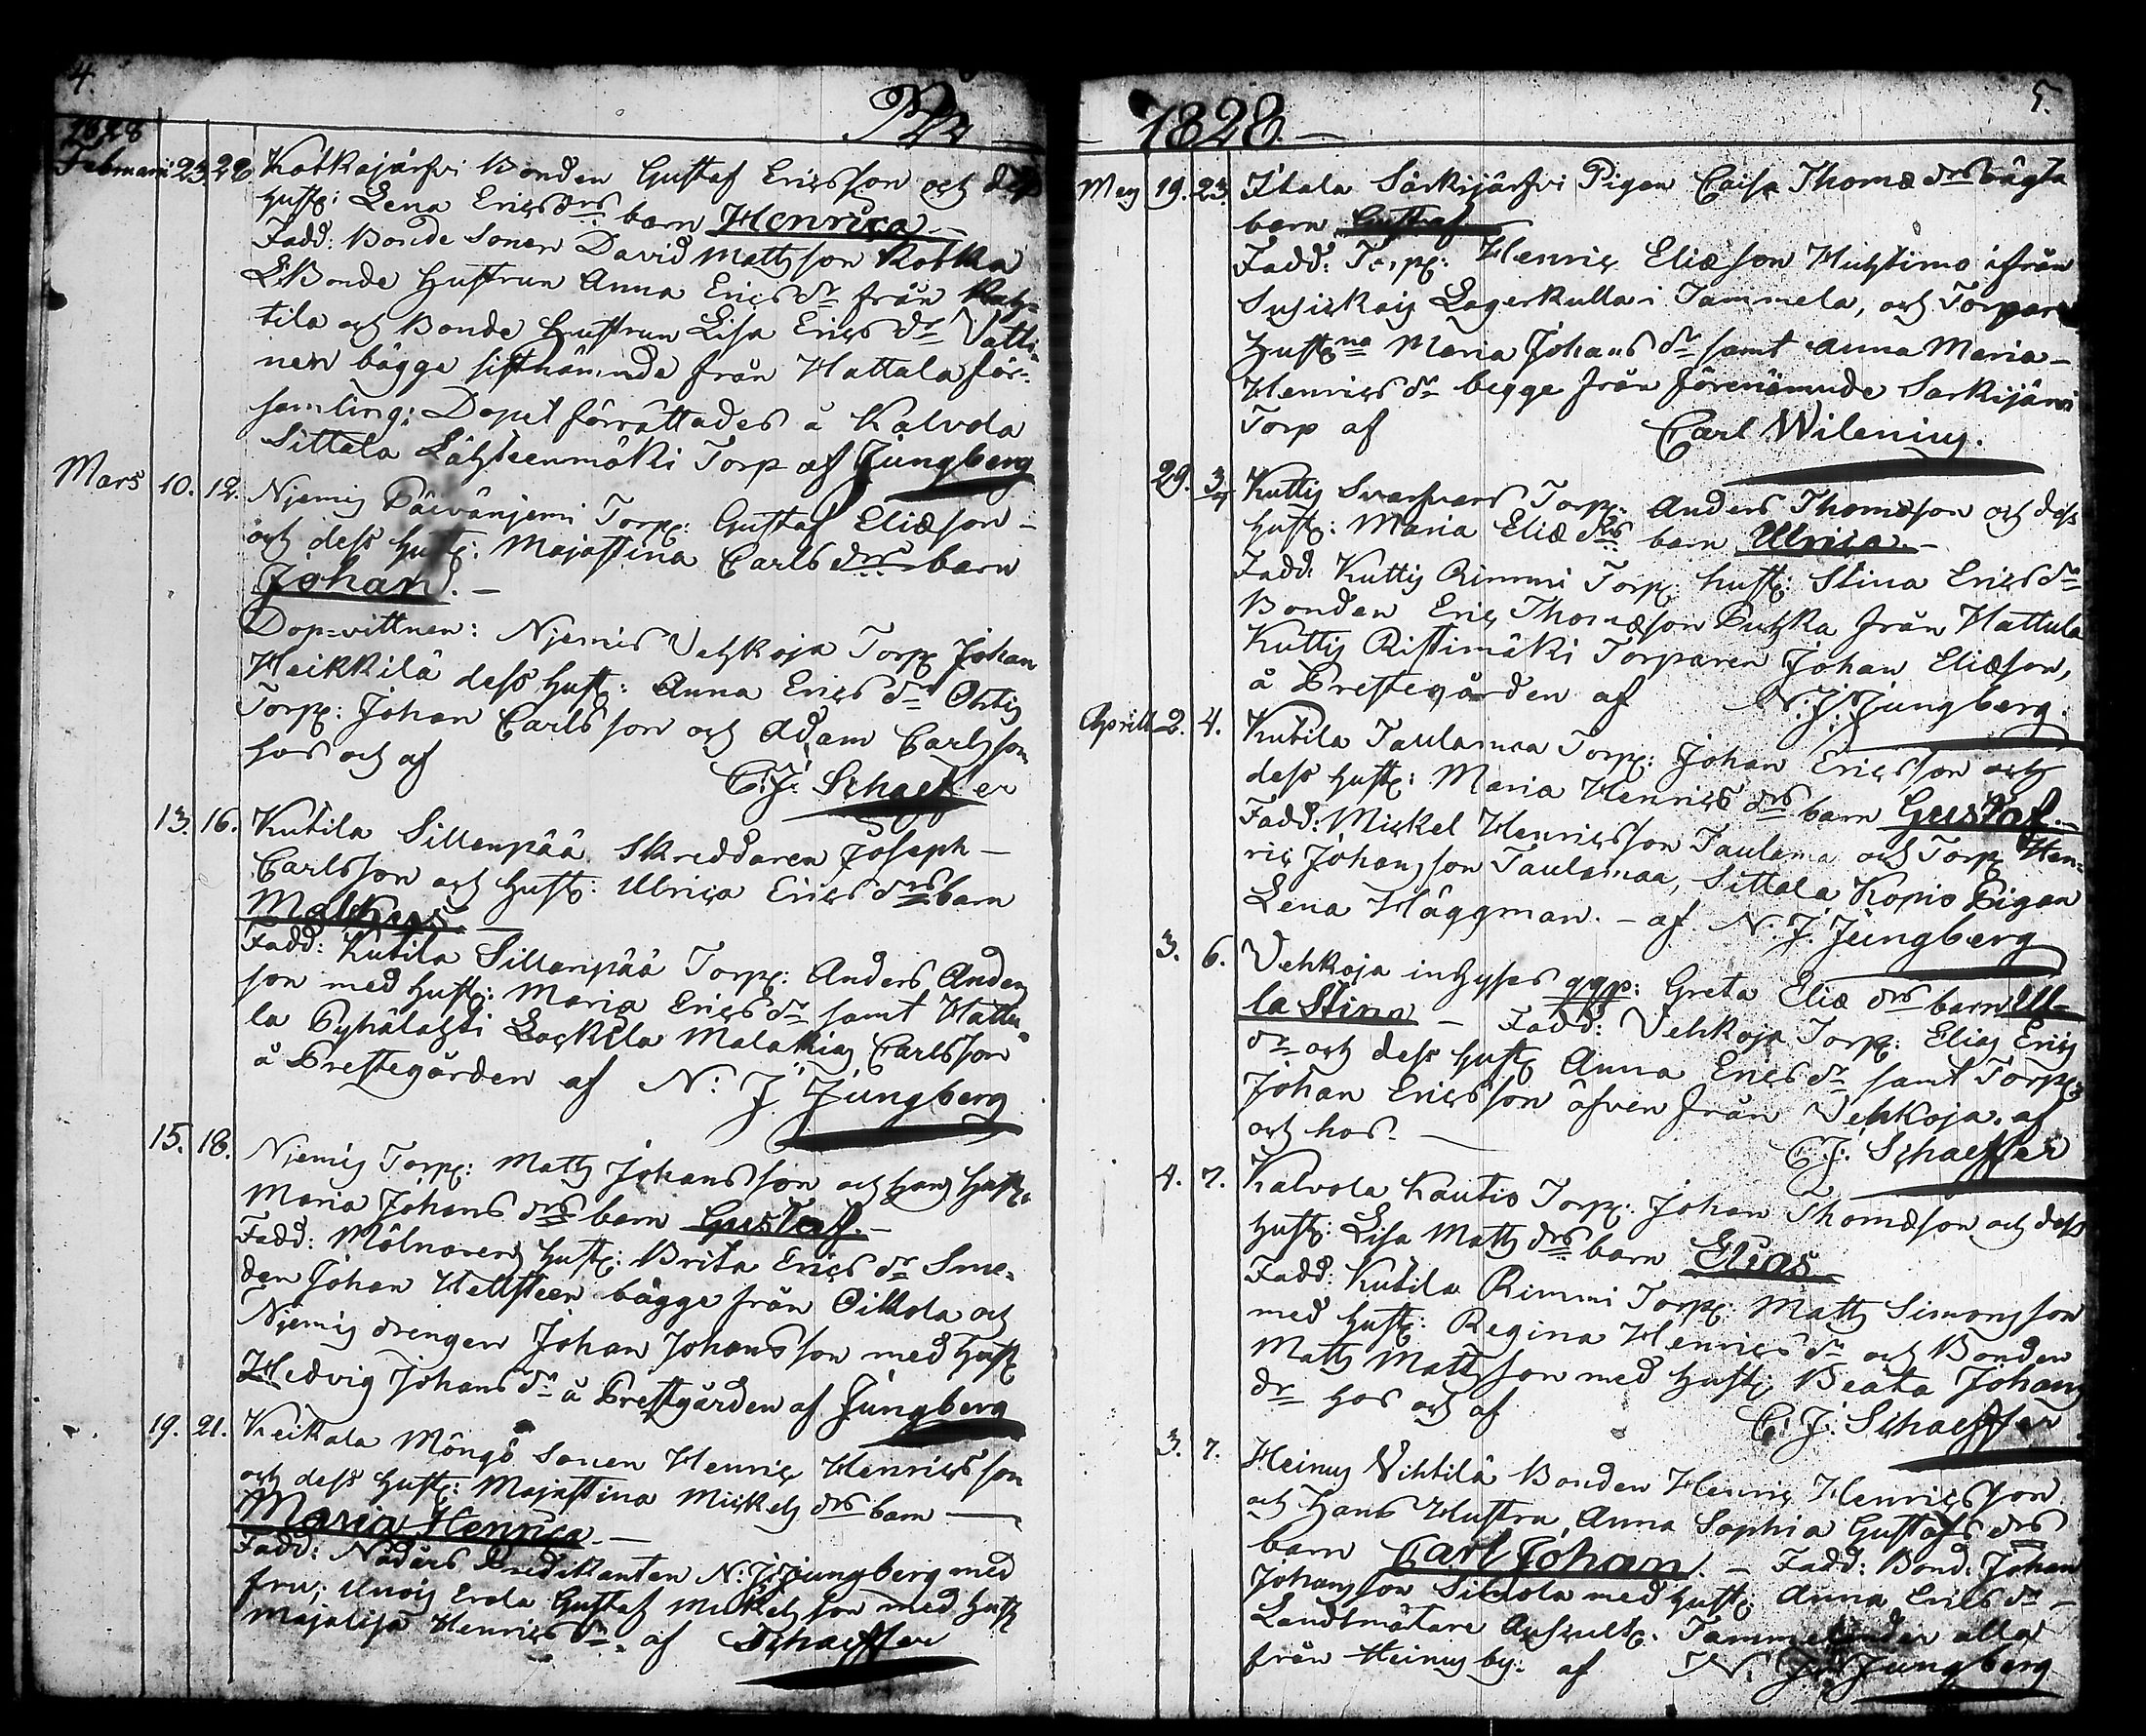 4.
1828
Februarii 23. 28. Kotkajärfvi Bonden Gustaf Ericsson och dess
Hust: Lena Ericsdrs barn Henrica. —
Fadd: Bonde Sonen David Mattsson Kotka
Bonde Hustrun Anna Ericsdr från
tila och Bonde Hustrun Lisa Ericsdr Vatti-
nen bägge sistnämnde från Hattula för-
samling; Dopet förrättades å Kalvola
Sittala Lähteenmäki Torp af Ljungberg
Mars 10. 12. Njemis Päivänjemi Torp: Gustaf Eliæson —
och dess Hust: Majastina Carlsdrs barn
Johan. —
Dop-vittnen: Njemis Vehkoja Torp: Johan
Heikkilä dess Hust: Anna Ericsdr Ohtis
Torp: Johan Carlsson och Adam Carlsson
hos och af C. J. Schaeffer
13. 16. Kutila Sillanpää Skreddaren Joseph —
Carlsson och Hust: Ulrica Ericsdrs barn
Matheus. —
Fadd: Kutila Sillanpää Torp: Anders Anders
son med Hust: Maria Ericsdr samt Hattu-
la Pyhälahti Malakias Carlsson
å Prestegården af N: J. Ljungberg
15. 18. Njemis Torp: Matts Johansson och hans Hust:
Maria Johansdrs barn Gustaf. —
Fadd: Mölnarens Hust: Brita Ericsdr Sme-
den Johan Hellsteen bägge från Oikola och
Njemis drengen Johan Johansson med Hust:
Hedvig Johansdr å Prestgården af Ljungberg
19. 21. Keikala Mångs Sonen Henric Henricsson
och dess Hust: Majastina Mickelsdrs barn —
Maria Henrica. —
Fadd: Nådårs Predikanten N: J. Ljungberg med
fru; Erola Gustaf Mickelsson med Hust:
Majalisa Henricsdr. af Schaeffer
1828. —
5.
19. 23. Särkijärfvi Pigan Caisa Thomædrs oägta
barn Gustaf —
Fadd: Torp: Henric Eliæson Huhtimo ifrån
Lagerkulla i Tammela, och Torpare
Hustrna Maria Johansdr samt Anna Maria —
Henricsdr begge från förenämnde Sarkijärvi
Torp af Carl Wilenius.
29. 3/4 Kuttis Svarfvars Torp: Anders Thomæson och dess
Hust: Maria Eliædrs barn Ulrica. —
Fadd: Kuttis Rimmi Torp: hust: Stina Ericsdr
Bonden Eric Thomæson Puhka från Hattula
Kuttis Ristimäki Torparen Johan Eliæson,
å Prestegården af N. J. Ljungberg.
Aprill 2. 4. Kutila Taulamaa Torp: Johan Ericsson och
dess Hust: Maria Henricsdrs barn Gustaf. —
Fadd: Mickel Henricsson Taulama och Torp: Hen-
ric Johansson Taulamaa, Sittala Kopio Pigan
Lena Häggman. — af N. J. Ljungberg
3. 6. Vehkoja inhyses qqp: Greta Eliædrs barn Ul-
la Stina — Fadd: Vehkoja Torp: Elias Erics
dr och dess Hust: Anna Ericsdr samt Torp:
Johan Ericsson äfven från Vehkoja. af
och hos. — C. J. Schaeffer
4. 7. Kalvola Kautio Torp: Johan Thomæson och dess
Hust: Lisa Mattsdrs barn Elias
Fadd: Kutila Rimmi Torp: Matts Simonsson
med Hust: Regina Henricsdr och Bonden
Matts Mattsson med Hust: Beata Johans
dr hos och af C. J. Schaeffer
3. 7. Heinus Vihtilä Bonden Henric Henricsson
och Hans Hustru Anna Sophia Gustafsdrs
barn Carl Johan. — Fadd: Bond: Johan
Johansson med Hust: Anna Ericsdr —
Landtmätare Auscult: Tammelander alla
från Heinus by: af N: J. Ljungberg